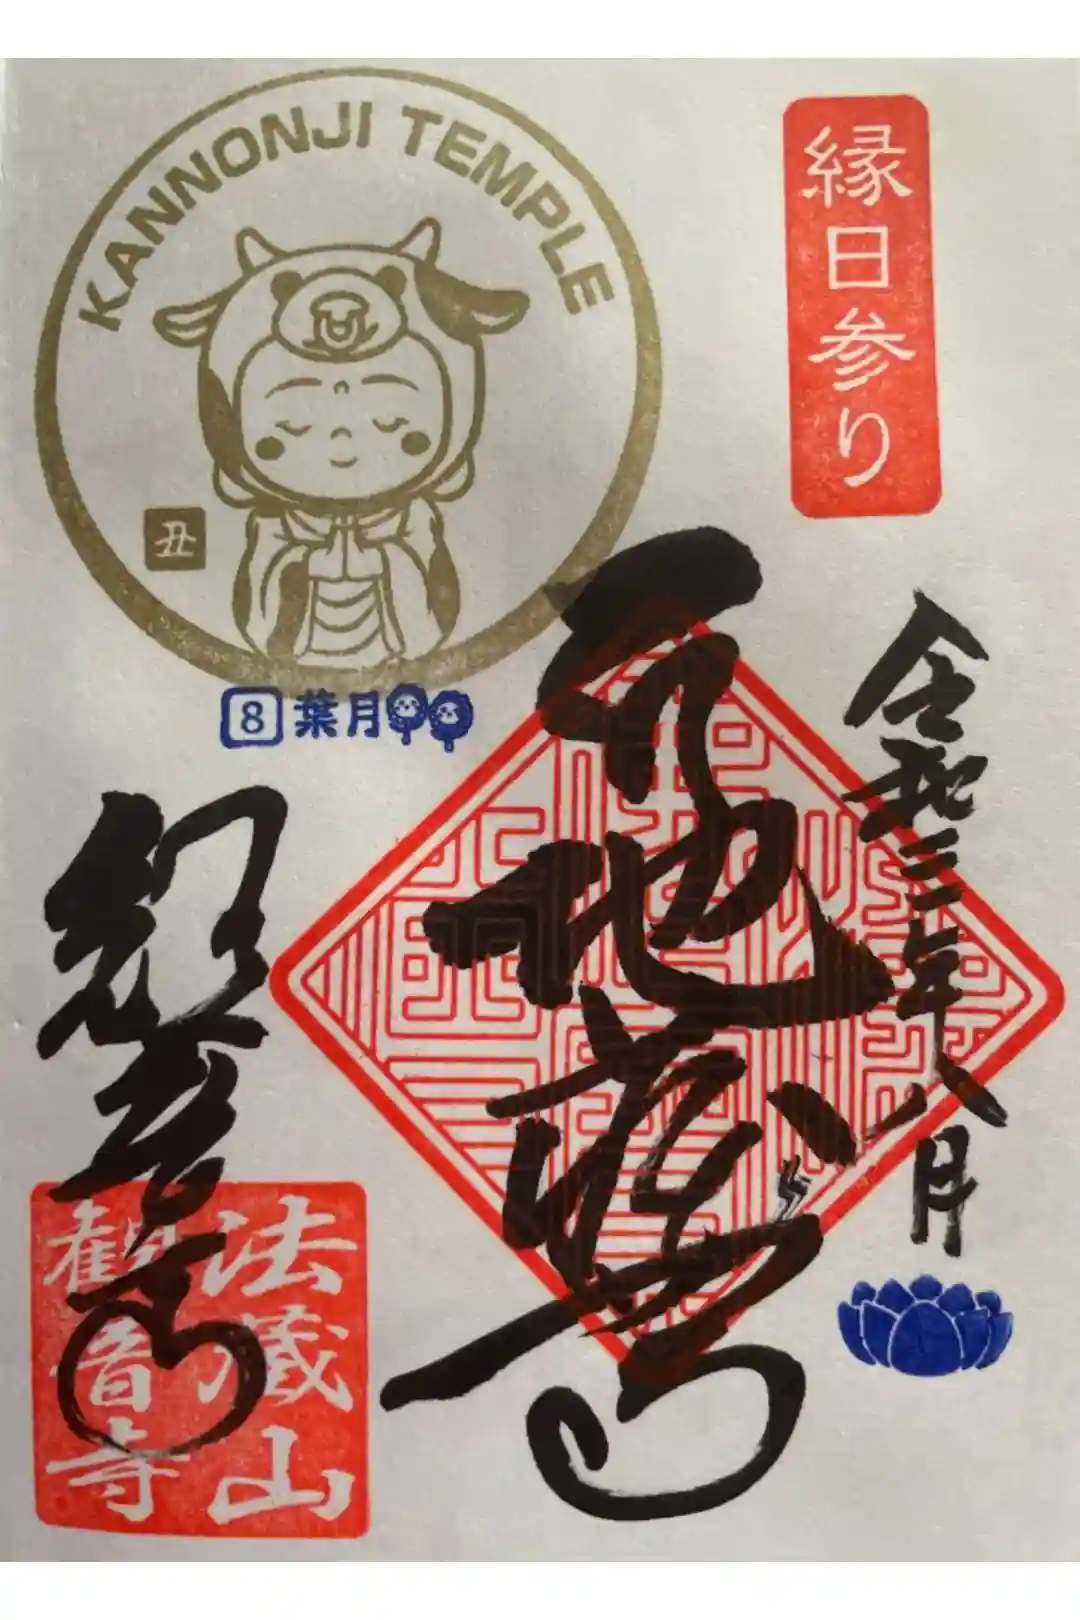 KANNONJI TEMPLE
丑
8 葉月
縁日参り
令和三年八月
地蔵尊
観音寺
法蔵山
観音寺